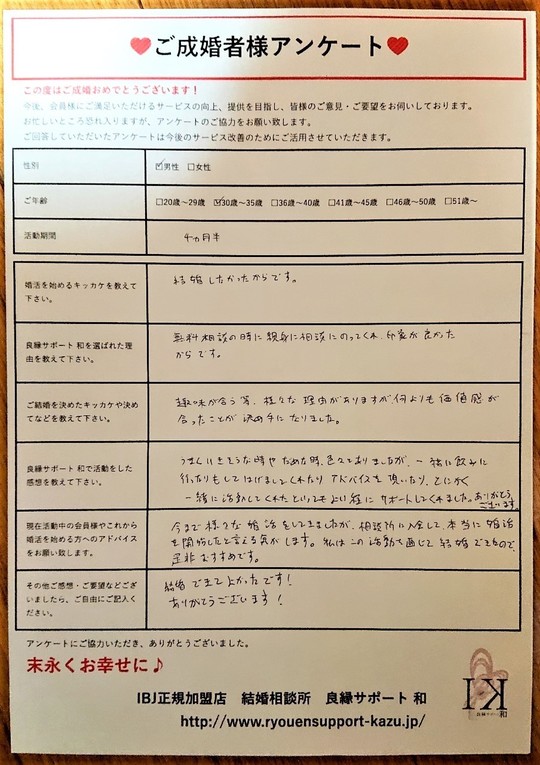 ❤ご成婚者様アンケート❤
この度はご成婚おめでとうございます！
今後、会員様にご満足いただけるサービスの向上、提供を目指し、皆様のご意見・ご要望をお伺いしております。
お忙しいところ恐れ入りますが、アンケートのご協力をお願い致します。
ご回答していただいたアンケートは今後のサービス改善のためにご活用させていただきます。
性別
☑男性 □女性
ご年齢
□20歳～29歳 ☑30歳～35歳 □36歳～40歳 □41歳～45歳 □46歳～50歳 □51歳～
活動期間
4ヵ月半
婚活を始めるキッカケを教えて
下さい。
結婚したかったからです。
良縁サポート 和を選ばれた理
由を教えて下さい。
無料相談の時に親身に相談にのってくれ、印象が良かった
からです。
ご結婚を決めたキッカケや決め
てなどを教えて下さい。
趣味が合う等、様々な理由がありますが何よりも価値感が
合ったことが決め手になりました。
良縁サポート 和で活動をした
感想を教えて下さい。
うまくいきそうな時やだめな時、色々ありましたが、一緒に飲みに
行ったりもしてはげましてくれたりアドバイスを頂いたり、とにかく
一緒に活動してくれたといってもよい程にサポートしてくれました。ありがとう
ございます。
現在活動中の会員様やこれから
婚活を始める方へのアドバイス
をお願い致します。
今まで様々な婚活をしてきましたが、相談所に入会して、本当に婚活
を開始したと言える気がします。私はこの活動を通じて結婚できたので、
是非おすすめです。
その他ご感想・ご要望などござ
いましたら、ご自由にご記入く
ださい。
結婚できてよかったです！
ありがとうございます！
アンケートにご協力いただき、ありがとうございました。
末永くお幸せに♪
IBJ正規加盟店 結婚相談所 良縁サポート 和
http://www.ryouensupport-kazu.jp/
良縁サポート 和